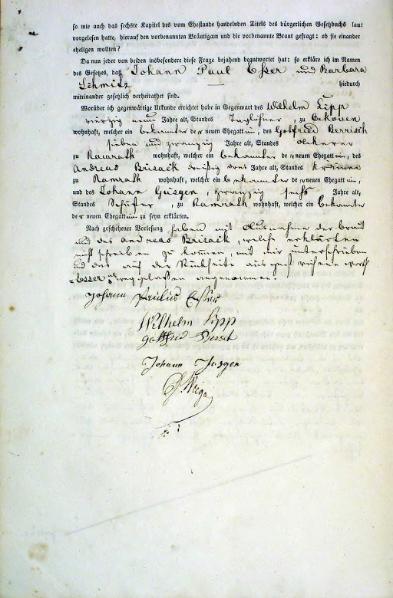 so wie auch das sechste Kapitel des vom Ehestande handelnden Titels des bürgerlichen Gesetzbuchs laut
vorgelesen hatte, hierauf den vorbenannten Bräutigam und die vorbenannte Braut gefragt: ob sie einander
ehelichen wollten?
Da nun jeder von beiden insbesondere diese Frage bejahend beantwortet hat: so erkläre ich im Namen
des Gesetzes, daß Johann Paul Esser und Barbara
Schmitz hiedurch
miteinander gesetzlich verheirathet sind.
Worüber ich gegenwärtige Urkunde errichtet habe in Gegenwart des Wilhelm Lipp
vierzig neun Jahre alt, Standes Taglöhner, zu
wohnhaft, welcher ein Bekannter der neuen Ehegatten, des Gottfried
sieben und zwanzig Jahre alt, Standes Ackerer
zu Ramrath wohnhaft, welcher ein Bekannter der neuen Ehegatten, des
Andreas dreißig Jahre alt, Standes
zu Ramrath wohnhaft, welcher ein Bekannter der neuen Ehegatten,
und des Johann zwanzig sechs Jahre alt,
Standes Schuster, zu Ramrath wohnhaft, welcher ein Bekannter
der neuen Ehegatten zu seyn erklärten.
Nach geschehener Vorlesung haben mit Ausnahme der Braut
und des Andreas welche erklärten
nicht schreiben zu können, mit mir unterschrieben
und das auf der Rückseite Wort
Esser angenommen.
Johann Paulus Esser
Wilhelm Lipp
Gottfried
Johann